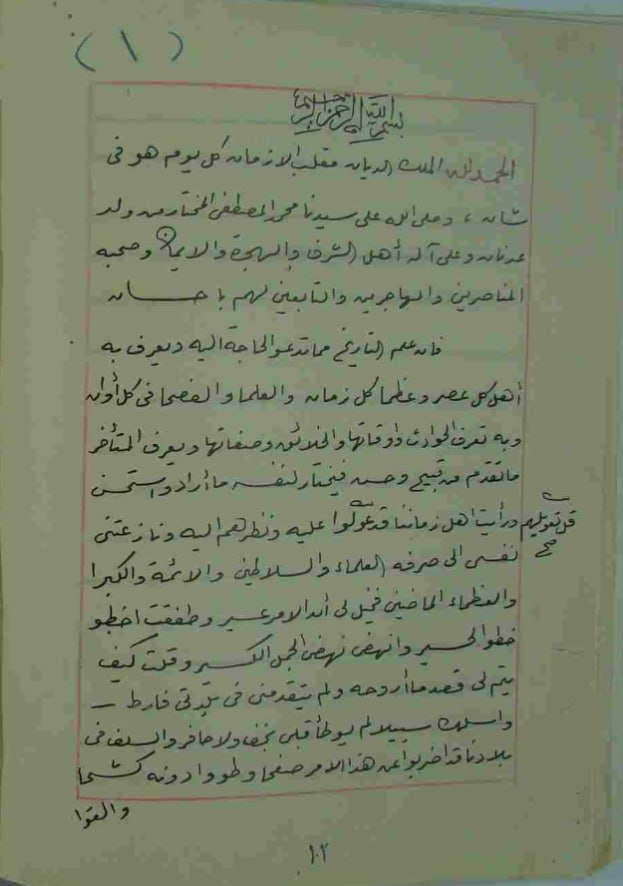 (١)
بسم الله الرحمن الرحيم
الحمد لله الملك الديان مقلب الازمان كل يوم هو فى
شان ، وصلى الله على سيدنا محمد المصطفى المختار من ولد
عدنان وعلى آله أهل الشرف والبهجة والايمان وصحبه
المناصرين والمهاجرين والتابعين لهم باحسان
فان علم التاريخ مما تدعو الحاجة اليه ويعرف به
أهل كل عصر وعظما كل زمان والعلما والفصحا فى كل أوان
وبه تعرف الحوادث وأوقاتها والخلائق وصفاتها ويعرف المتأخر
ما تقدم من قبيح وحسن فيختار لنفسه ما أراد واستحسن
ورأيت اهل زماننا قد عولوا عليه ونظرهم اليه ونازعتنى
قل تعويلهم
صح
نفسى الى صرفه العلماء والسلاطين والائمة والكبرا
والعظماء الماضين فخيل لى أن الامر عسير وطفقت اخطو
خطو الحسير وانهض نهض الجمل الكسير وقلت كيف
يتم لى قصد ما أروحه ولم يتقدمنى فى بلدتى فارط
واسلك سبيلا لم يوطأ قبلى بخف ولا حافر والسلف فى
بلادنا قد اضربوا عن هذا الامر صفحا وطووا دونه كشحا
والقوا
١٠٢